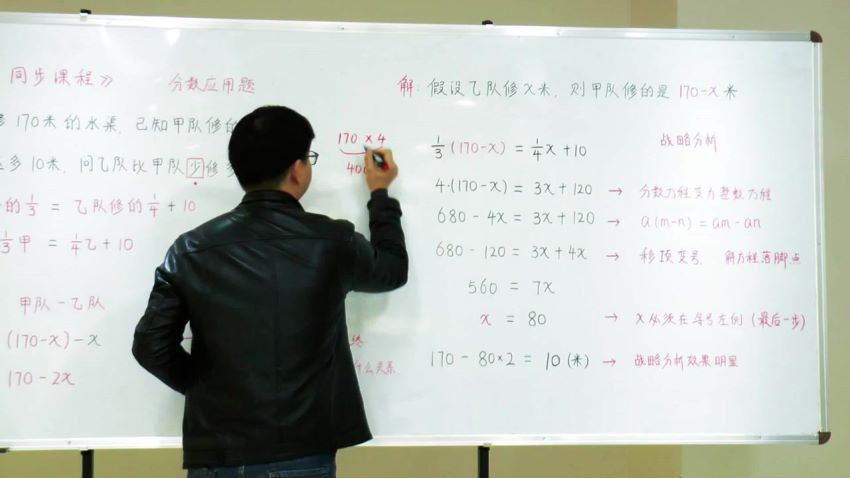 同步课程》 分数应用题
170米的水渠，已知甲队修的
多10米，问乙队比甲队少修多
的1/3 = 乙队修的1/4 + 10
1/3甲 = 1/4乙 + 10
甲队 - 乙队
(170-x) - x
170 - 2x
170 × 4
40
什么关系
解: 假设乙队修x米，则甲队修的是 170-x 米
1/3 (170-x) = 1/4x + 10 战略分析
4·(170-x) = 3x + 120 → 分数方程变为整数方程
680 - 4x = 3x + 120 → a(m-n) = am - an
680 - 120 = 3x + 4x → 移项变号，解方程落脚点
560 = 7x
x = 80 → x必须在等号左侧 (最后一步)
170 - 80×2 = 10 (米) → 战略分析效果明显